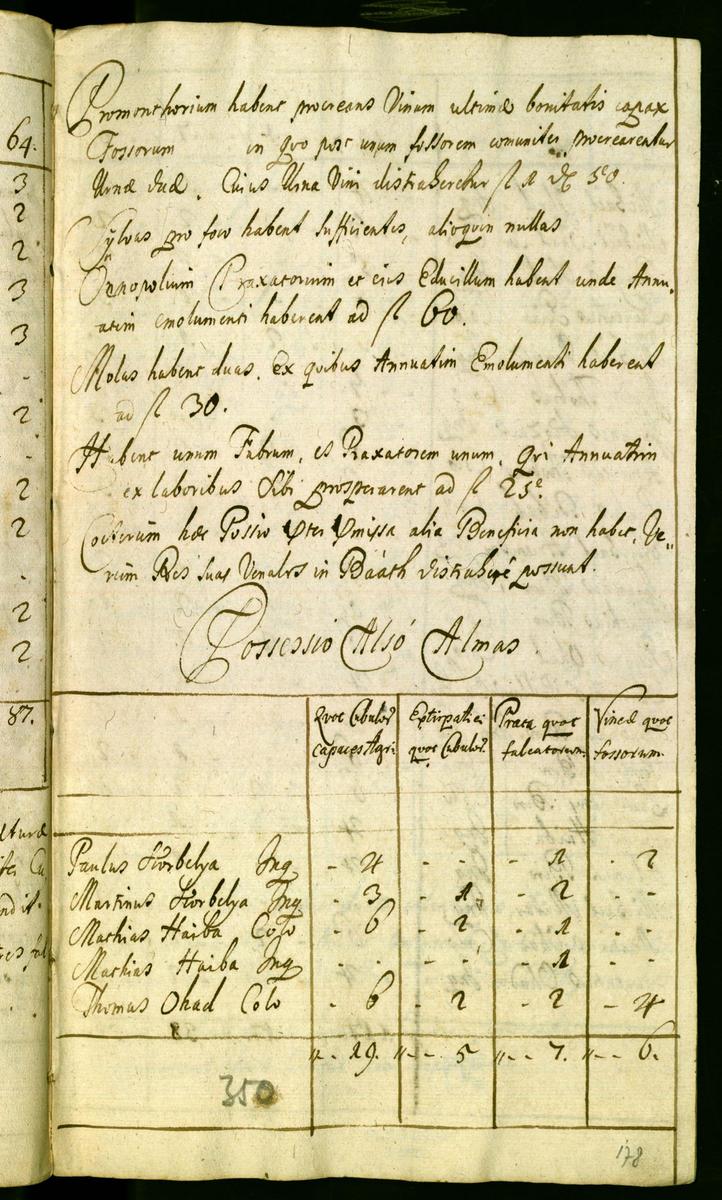 64.
3
2
2
3
3
-
2
-
2
2
-
2
2
87.
Promonthorium habent procreans Vinum ultimæ bonitatis capax
Fossorum in quo post unum fossorem comuniter procrearentur
Urnæ duæ. Cuius Urna Vini distraheretur fl 1 d 50.
Sylvas pro foco habent sufficientes, alioquin nullas.
Œnopolium Praxatorium et eius Educillum habent unde Annu-
atim emolumenti haberent ad fl 60.
Molas habent duas. Ex quibus Annuatim Emolumenti haberent
ad fl 30.
Habent unum Fabrum, et Praxatorem unum, qui Annuatim
ex laboribus sibi prosperarent ad fl 25.
Cæterum hæc Possio alia Beneficia non habet. Ve-
rum Res suas Venales in Báath distrahere possunt.
Possessio Alsó Almas
Quot Cubulor. capaces Agri
Extirpatici quot Cubulor.
Prata quot falcatorum.
Vineæ quot fossorum.
Paulus Horbelya Inq - 4 - - - 1 - 2
Martinus Horbelya Inq - 3 - 1 - 2 - -
Mathias Haiba Colo - 6 - 2 - 1 - -
Mathias Haiba Inq - - - - - 1 - -
Thomas Ohad Colo - 6 - 2 - 2 - 4
" - 19. " - - 5 " - - 7. " - - 6.
350
178